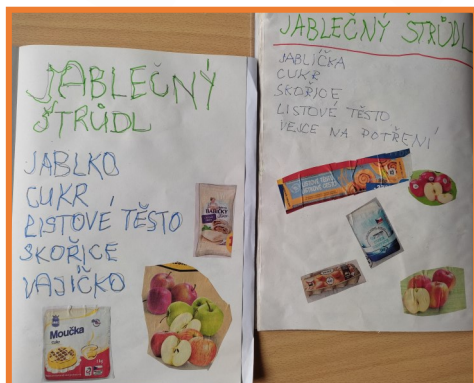 JABLEČNÝ
ŠTRŮDL
JABLKO
CUKR
LISTOVÉ TĚSTO
SKOŘICE
VAJÍČKO
Moučka
JABLEČNÝ ŠTRŮDL
JABLÍČKA
CUKR
SKOŘICE
LISTOVÉ TĚSTO
VEJCE NA POTŘENÍ